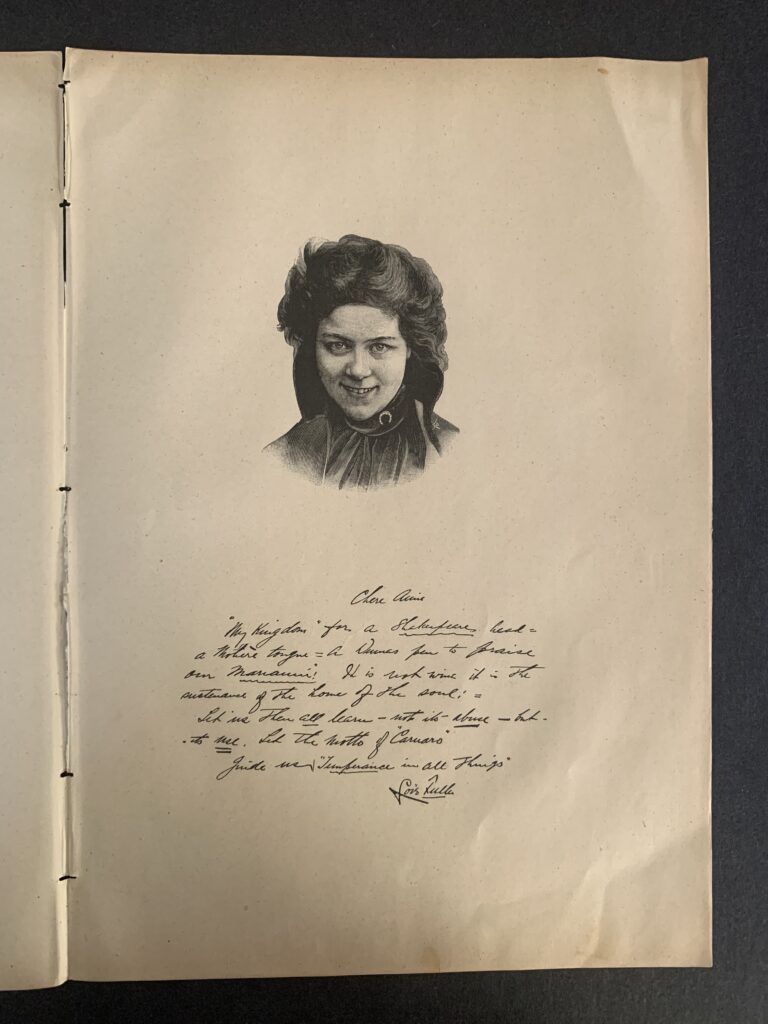 Chere Amie
"My Kingdom" for a Shekspeares head =
a Moliere tongue = a Dumas pen to praise
our Mariani! It is not wine it is the
sustenance of the home of the soul; =
Let us then all learn – not its abuse – but
its use. Let the motto of "Carnaro"
Guide us "Temperance in all things"
Loïe Fuller